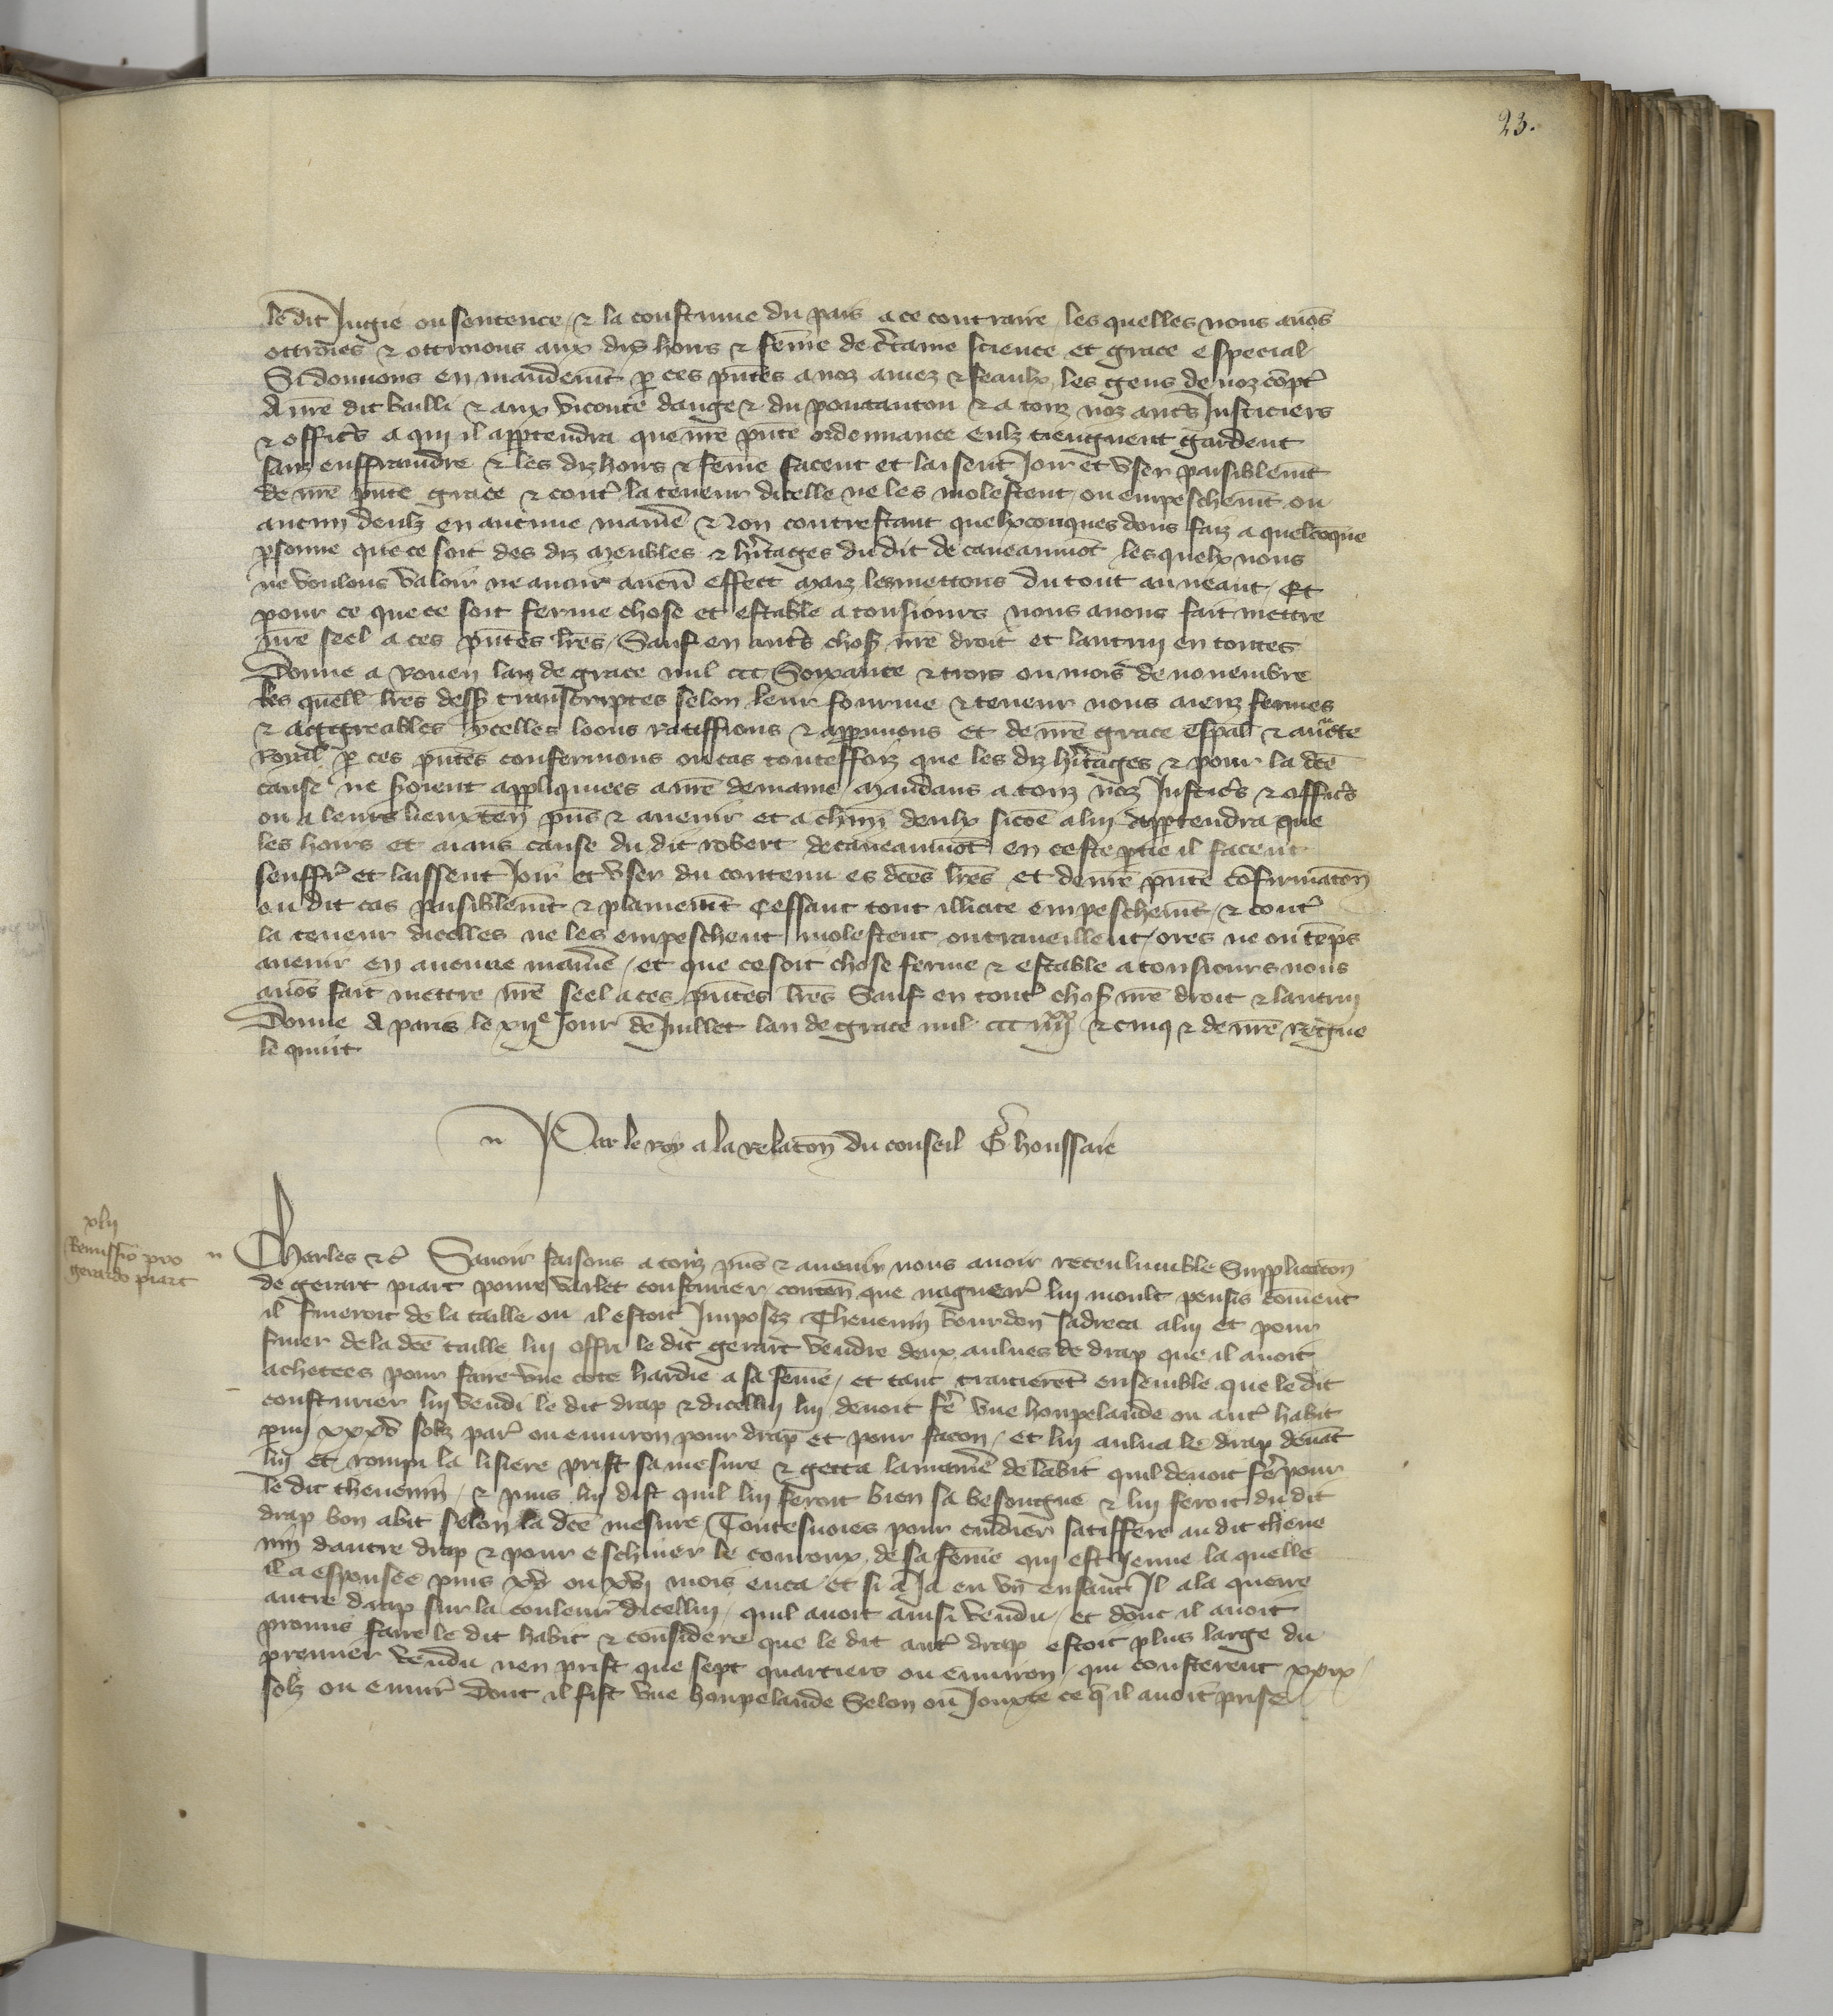 23.
le dit Jugie ou sentence / & la coustume du pais a ce contraire / les quelles nous avōs
ottroiēes & ottroions aux diz hoirs & fem̄e de c̄taine science et grace especial
Si donnons en mandem̄t p̄ ces pn̄tes a noz amez & feaulx les gens de noz compt̄
A nr̄e dit bailli & aux viconte dauge & du pontautou & a touz noz autr̄s Justiciers
& offic̄s a qui il app̄tendra que nr̄e pn̄te ordennance eulz tiengnent gardent
sanz enffraindre & les diz hoirs & fem̄e facent et laissent Joir et user paisiblem̄t
de nr̄e pn̄te grace & contr̄ la teneur dicelle ne les molestent / ou empeschem̄t ou
aucun deulz en aucune manie͂ & Non contrestant quelxconques dons faiz a quelcōque
p̄sonne que ce soit des diz meubles & hr̄itages du dit de caueaumōt les quelx nous
ne voulons valoir ne auoir aucū effect maiz les mettons du tout au neant / Et
pour ce que ce soit ferme chose et estable a tousiours nous auons fait mettre
nr̄e seel a ces pn̄tes lr̄es / Sauf en autr̄s chos̄ nr̄e droit et lautruy en toutes
Donne a Rouen lan de grace mil ccc Soixante & trois ou mois de nouembre
les quell̄ lr̄es dess̄ transcriptes selon leur fourme & teneur nous aienz fermes
& aggreables ycelles loons ratiffions & approuuons et de nr̄e grace esp̄al & auct̄te
Royal p̄ ces pn̄tes confermons ou cas touteffoiz que les diz hr̄itages & pour la dc̄e
cause ne soient appliquiees a nr̄e demaine / mandans a touz noz Justic̄s & offic̄s
ou a leurs lieuxten̄ pn̄s & auenir et a chun̄ deulx sicōe a lui app̄tendra que
les hoirs et aians cause du dit robert de caueaumōt en ceste p̄tie il facent
seuffr̄ et laissent Joir et user du contenu es dc̄es lr̄es et de nr̄e pn̄te cōfirmatōn
ou dit cas paisiblem̄t & plainem̄t Cessant tout illicite empeschem̄t / & contr̄
la teneur dicelles ne les empeschent molestent ou traueillent / ores ne ou tēps
auenir en aucune manie͂ / et que ce soit chose ferme & estable a tousiours nous
auōs fait mettre nr̄e seel a ces pn̄tes lr̄es Sauf en tout̄ chos̄ nr̄e droit & lautruy
Donne A paris le xije Jour de Juillet lan de grace mil ccc iiijxx & cinq & de nr̄e regne
le quint
n Par le roy a la relatōn du conseil G houssaie
xlij
Remissio pro
gerardo piart
n Charles &c̄ Sauoir faisons a touz pn̄s & auenir nous auoir receu lumble Supplicatōn
de gerart piart poure varlet cousturier / conten̄ que naguear̄ lui moult pensis cōment
il fineroit de la taille ou il estoit Imposez Theuenin bourdon sadreca a lui et pour
finer de la dc̄e taille lui offri le dit gerart vendre deux aulnes de drap que il auoit
achetees pour faire vne cote hardie a sa fem̄e / et tant traitierēt ensemble que le dit
cousturier lui vendi le dit drap & dicellui lui deuoit fe͂ vne houpelande ou autr̄ habit
p̄mi xxxv solz par̄ ou enuiron pour drap et pour facon / et lui aulna le drap deuāt
lui et rompi la lisiere prist sa mesure & getta la manie͂ de labit quil deuoit fe͂ pour
le dit theuenin / & puis lui dist quil lui feroit bien sa besongne & lui feroit du dit
drap bon abit selon la dc̄e mesure / Toutesuoies pour cuidier satiffere au dit theue
nin dautre drap & pour eschiuer le courroux de sa fem̄e qui est Jeune la quelle
il a espousee puis xv ou xvj mois enca / et si a Ja eu vn̄ enfant Il ala querre
autre drap sur la couleur dicellui / quil auoit ainsi vendu / et dont il auoit
promis faire le dit habit & considere que le dit autr̄ drap estoit plus large du
premier vendu nen prist que sept quartiers ou enuiron / qui cousterent xxix
solz ou enuir̄ Dont il fist vne houpelande Selon ou Jouxte ce q̄ il auoit prise